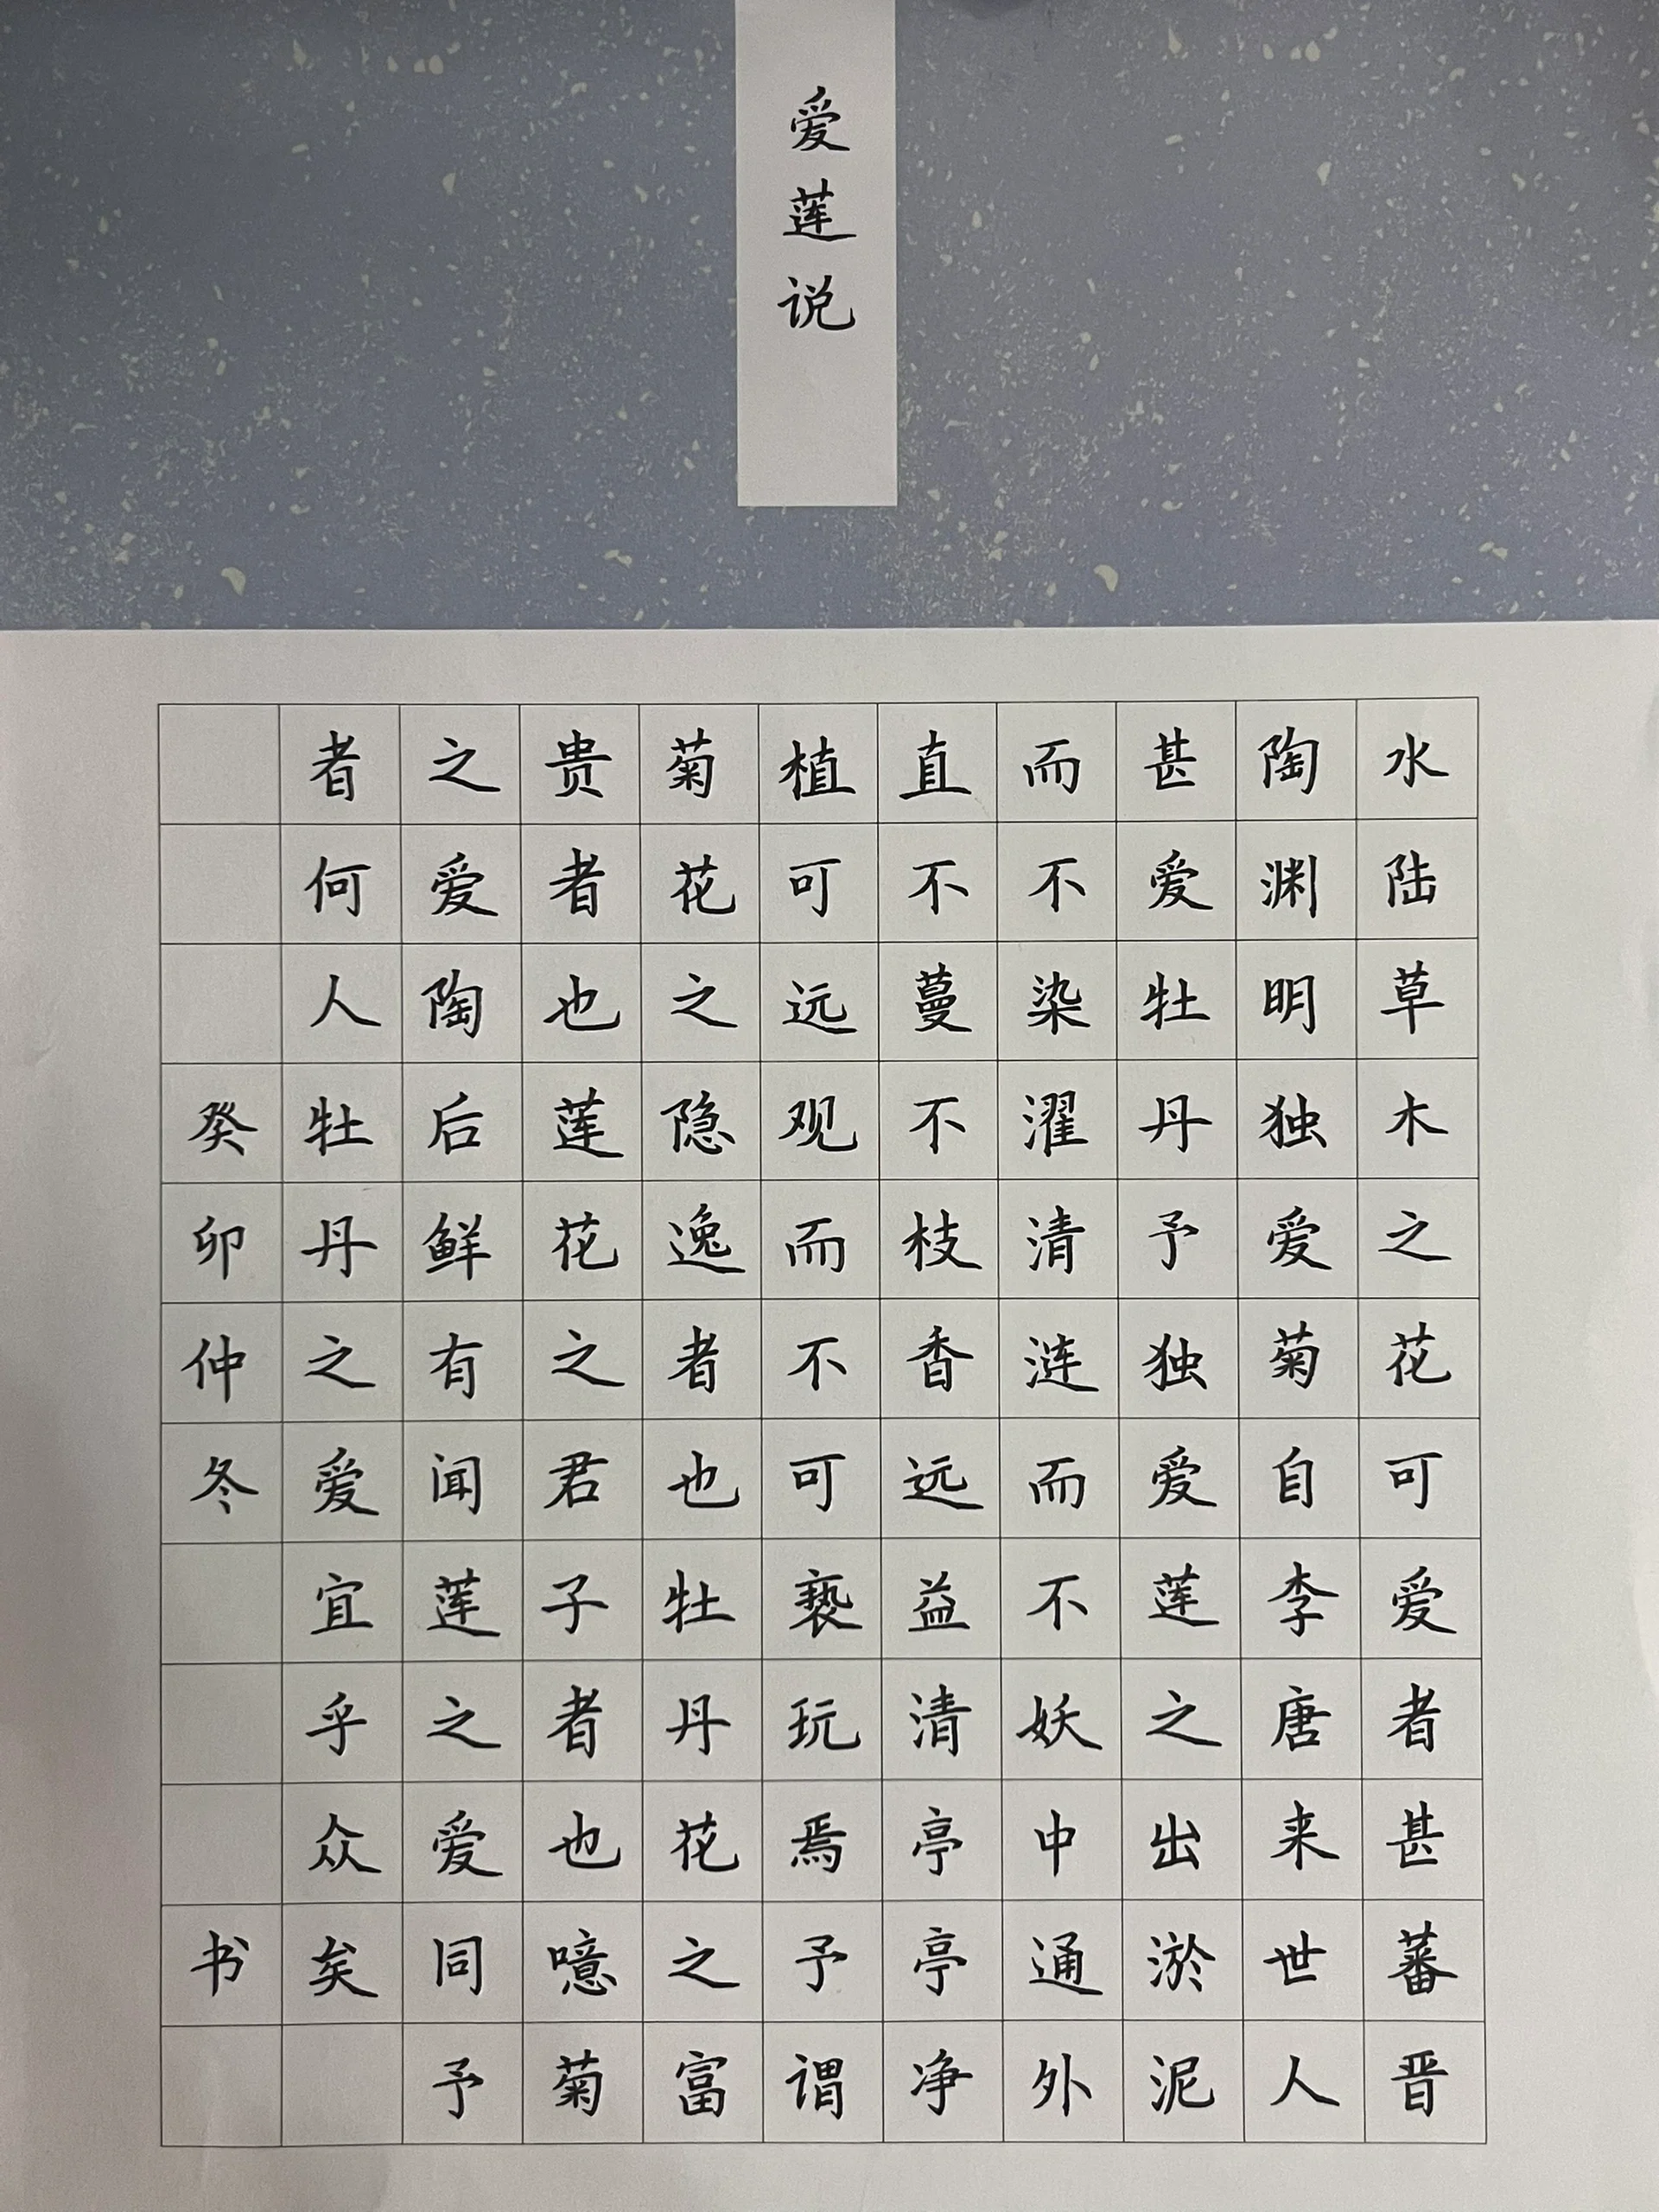 爱莲说
水陆草木之花可爱者甚蕃晋
陶渊明独爱菊自李唐来世人
甚爱牡丹予独爱莲之出淤泥
而不染濯清涟而不妖中通外
直不蔓不枝香远益清亭亭净
植可远观而不可亵玩焉予谓
菊花之隐逸者也牡丹花之富
贵者也莲花之君子者也噫菊
之爱陶后鲜有闻莲之爱同予
者何人牡丹之爱宜乎众矣
癸卯仲冬 书